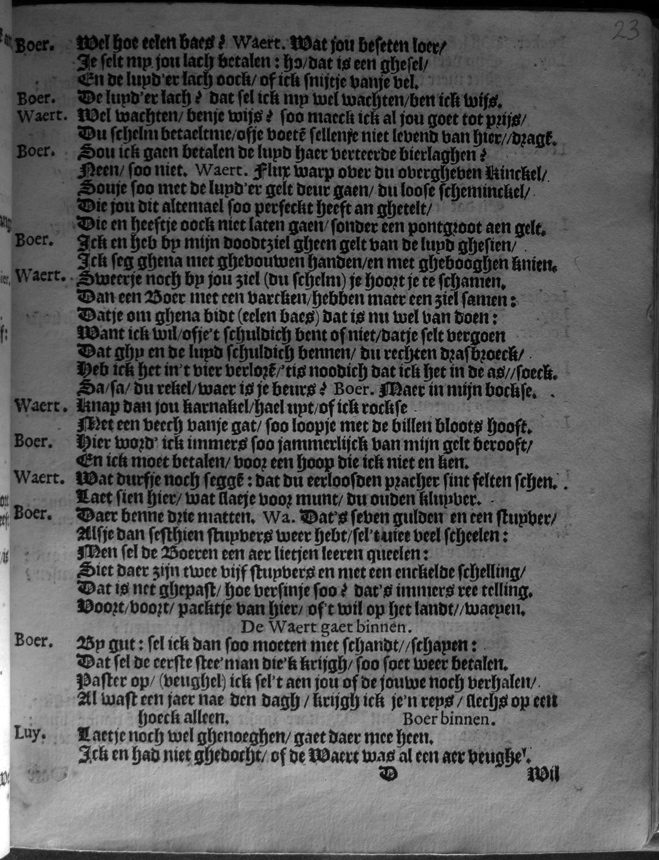 23
Boer. Wel hoe eelen baes? Waert. Wat jou beseten loer/
Je selt my jou lach betalen: ho/dat is een ghesel/
En de luyd'er lach oock/ of ick snijtje vanje vel.
Boer. De luyd'er lach? dat sel ick my wel wachten/ben ick wijs.
Waert. Wel wachten/ benje wijs? soo maeck ick al jou goet tot prijs/
Du schelm betaeltme/ofje voetẽ sellenje niet levend van hier//dragẽ.
Boer. Sou ick gaen betalen de luyd haer verteerde bierlaghen?
Neen/ soo niet. Waert. Flux warp over du overgheven Kinckel/
Souje soo met de luyd'er gelt deur gaen/ du loose scheminckel/
Die jou dit altemael soo perfeckt heeft an ghetelt/
Die en heeftje oock niet laten gaen/ sonder een pontgroot aen gelt.
Boer. Ick en heb by mijn doodtziel gheen gelt van de luyd ghesien/
Ick seg ghena met ghevouwen handen/en met ghebooghen knien.
Waert. Sweerje noch by jou ziel (du schelm) je hoort je te schamen.
Dan een Boer met een varcken/hebben maer een ziel samen:
Datje om ghena bidt (eelen baes) dat is nu wel van doen:
Want ick wil/ofje't schuldich bent of niet/datje selt vergoen
Dat ghy en de luyd schuldich bennen/ du rechten drasbroeck/
Heb ick het in't vier verlorẽ/'tis noodich dat ick het in de as//soeck.
Sa/sa/ du rekel/waer is je beurs? Boer. Maer in mijn bockse.
Waert. Knap dan jou karnakel/hael uyt/of ick rockse
Met een veech vanje gat/ soo loopje met de billen bloots hooft.
Boer. Hier word' ick immers soo jammerlijck van mijn gelt berooft/
En ick moet betalen/ voor een hoop die ick niet en ken.
Waert. Wat durfje noch seggẽ: dat du eerloosden pracher sint felten schen.
Laet sien hier/ wat slaetje voor munt/ du ouden kluyver.
Boer. Daer benne drie matten. Wa. Dat's seven gulden en een stuyver/
Alsje dan sesthien stuyvers weer hebt/sel't niet veel scheelen:
Men sel de Boeren een aer lietjen leeren queelen:
Siet daer zijn twee vijf stuyvers en met een enckelde schelling/
Dat is net ghepast/ hoe versinje soo? dat's immers ree telling.
Voort/voort/ packtje van hier/ of't wil op het landt//waeyen.
De Waert gaet binnen.
Boer. By gut: sel ick dan soo moeten met schandt//schayen:
Dat sel de eerste stee'man die'k krijgh/ soo soet weer betalen.
Paster op/ (veughel) ick sel't aen jou of de jouwe noch verhalen/
Al wast een jaer nae den dagh/ krijgh ick je'n reys/ slechs op een
hoeck alleen. Boer binnen.
Luy. Laetje noch wel ghenoeghen/ gaet daer mee heen.
Ick en had niet ghedocht/ of de Waert was al een aer veughel.
D Wil